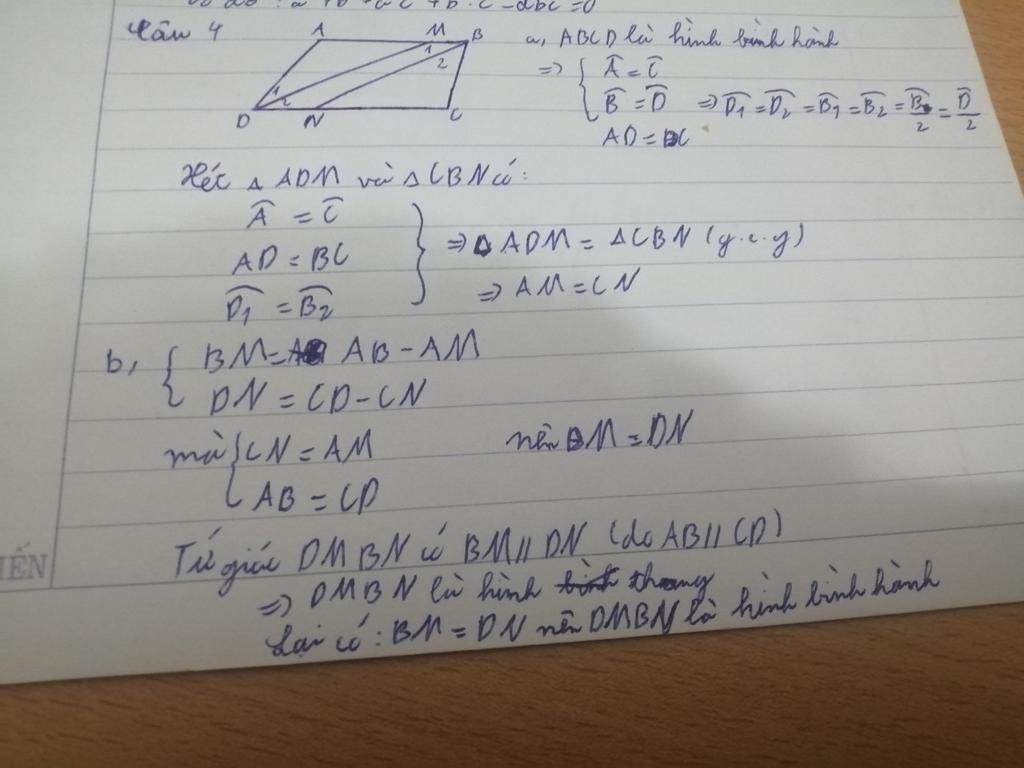 Câu 4
A M B
1
2
1
2
D N C
a, ABCD là hình bình hành
=> { Â = Ĉ
B̂ = D̂ => D̂1 = D̂2 = B̂1 = B̂2 = B̂/2 = D̂/2
AD = BC
Xét △ ADM và △ CBN có:
Â = Ĉ
AD = BC } => △ ADM = △CBN (g.c.g)
D̂1 = B̂2
=> AM = CN
b, { BM = AB - AM
DN = CD - CN
mà { CN = AM nên BM = DN
AB = CD
Tứ giác DMBN có BM // DN (do AB // CD)
=> DMBN là hình thang
Lại có: BM = DN nên DMBN là hình bình hành
IẾN